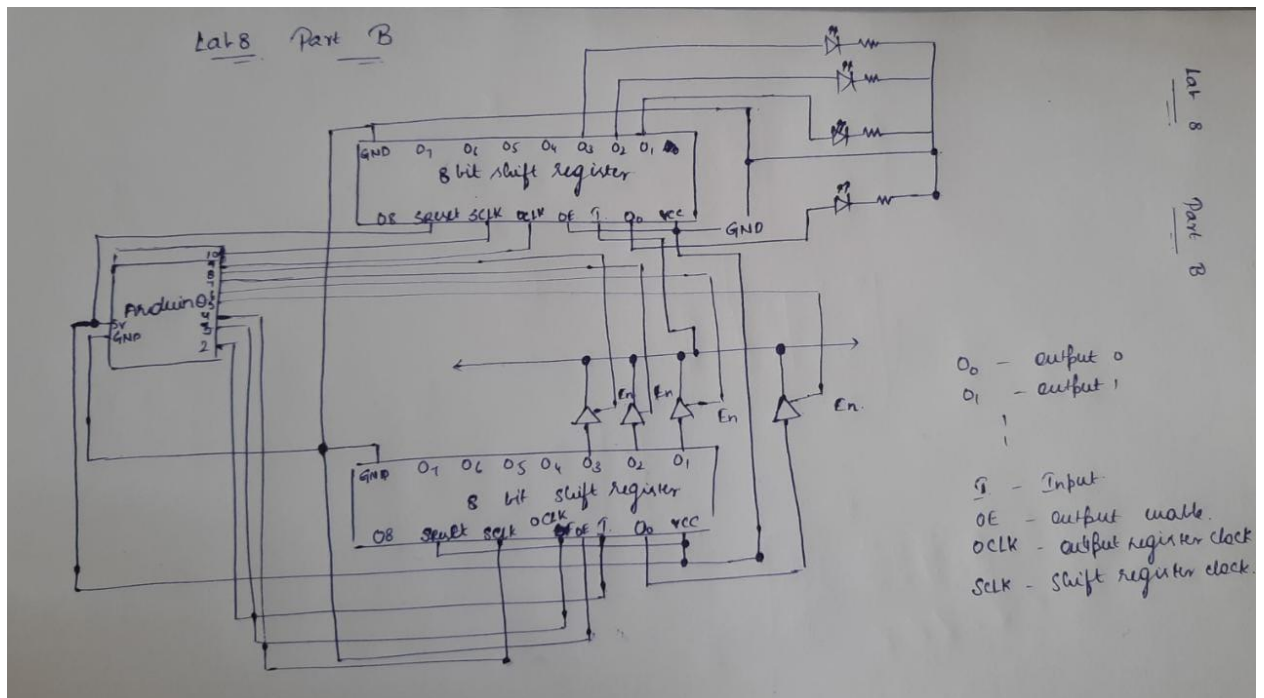 Lab 8 Part B
GND O7 O6 O5 O4 O3 O2 O1
8 bit shift register
O8 SReset SCLK OCLK OE I O0 VCC
GND
Arduino
10
9
8
7
6
5
4
3
2
5v
GND
En
En
En
En.
GND O7 O6 O5 O4 O3 O2 O1
8 bit shift register
O8 SReset SCLK OCLK OE I. O0 VCC
O0 - output 0
O1 - output 1
I - Input
OE - output enable.
OCLK - output register clock
SCLK - shift register clock.
Lab 8 Part B